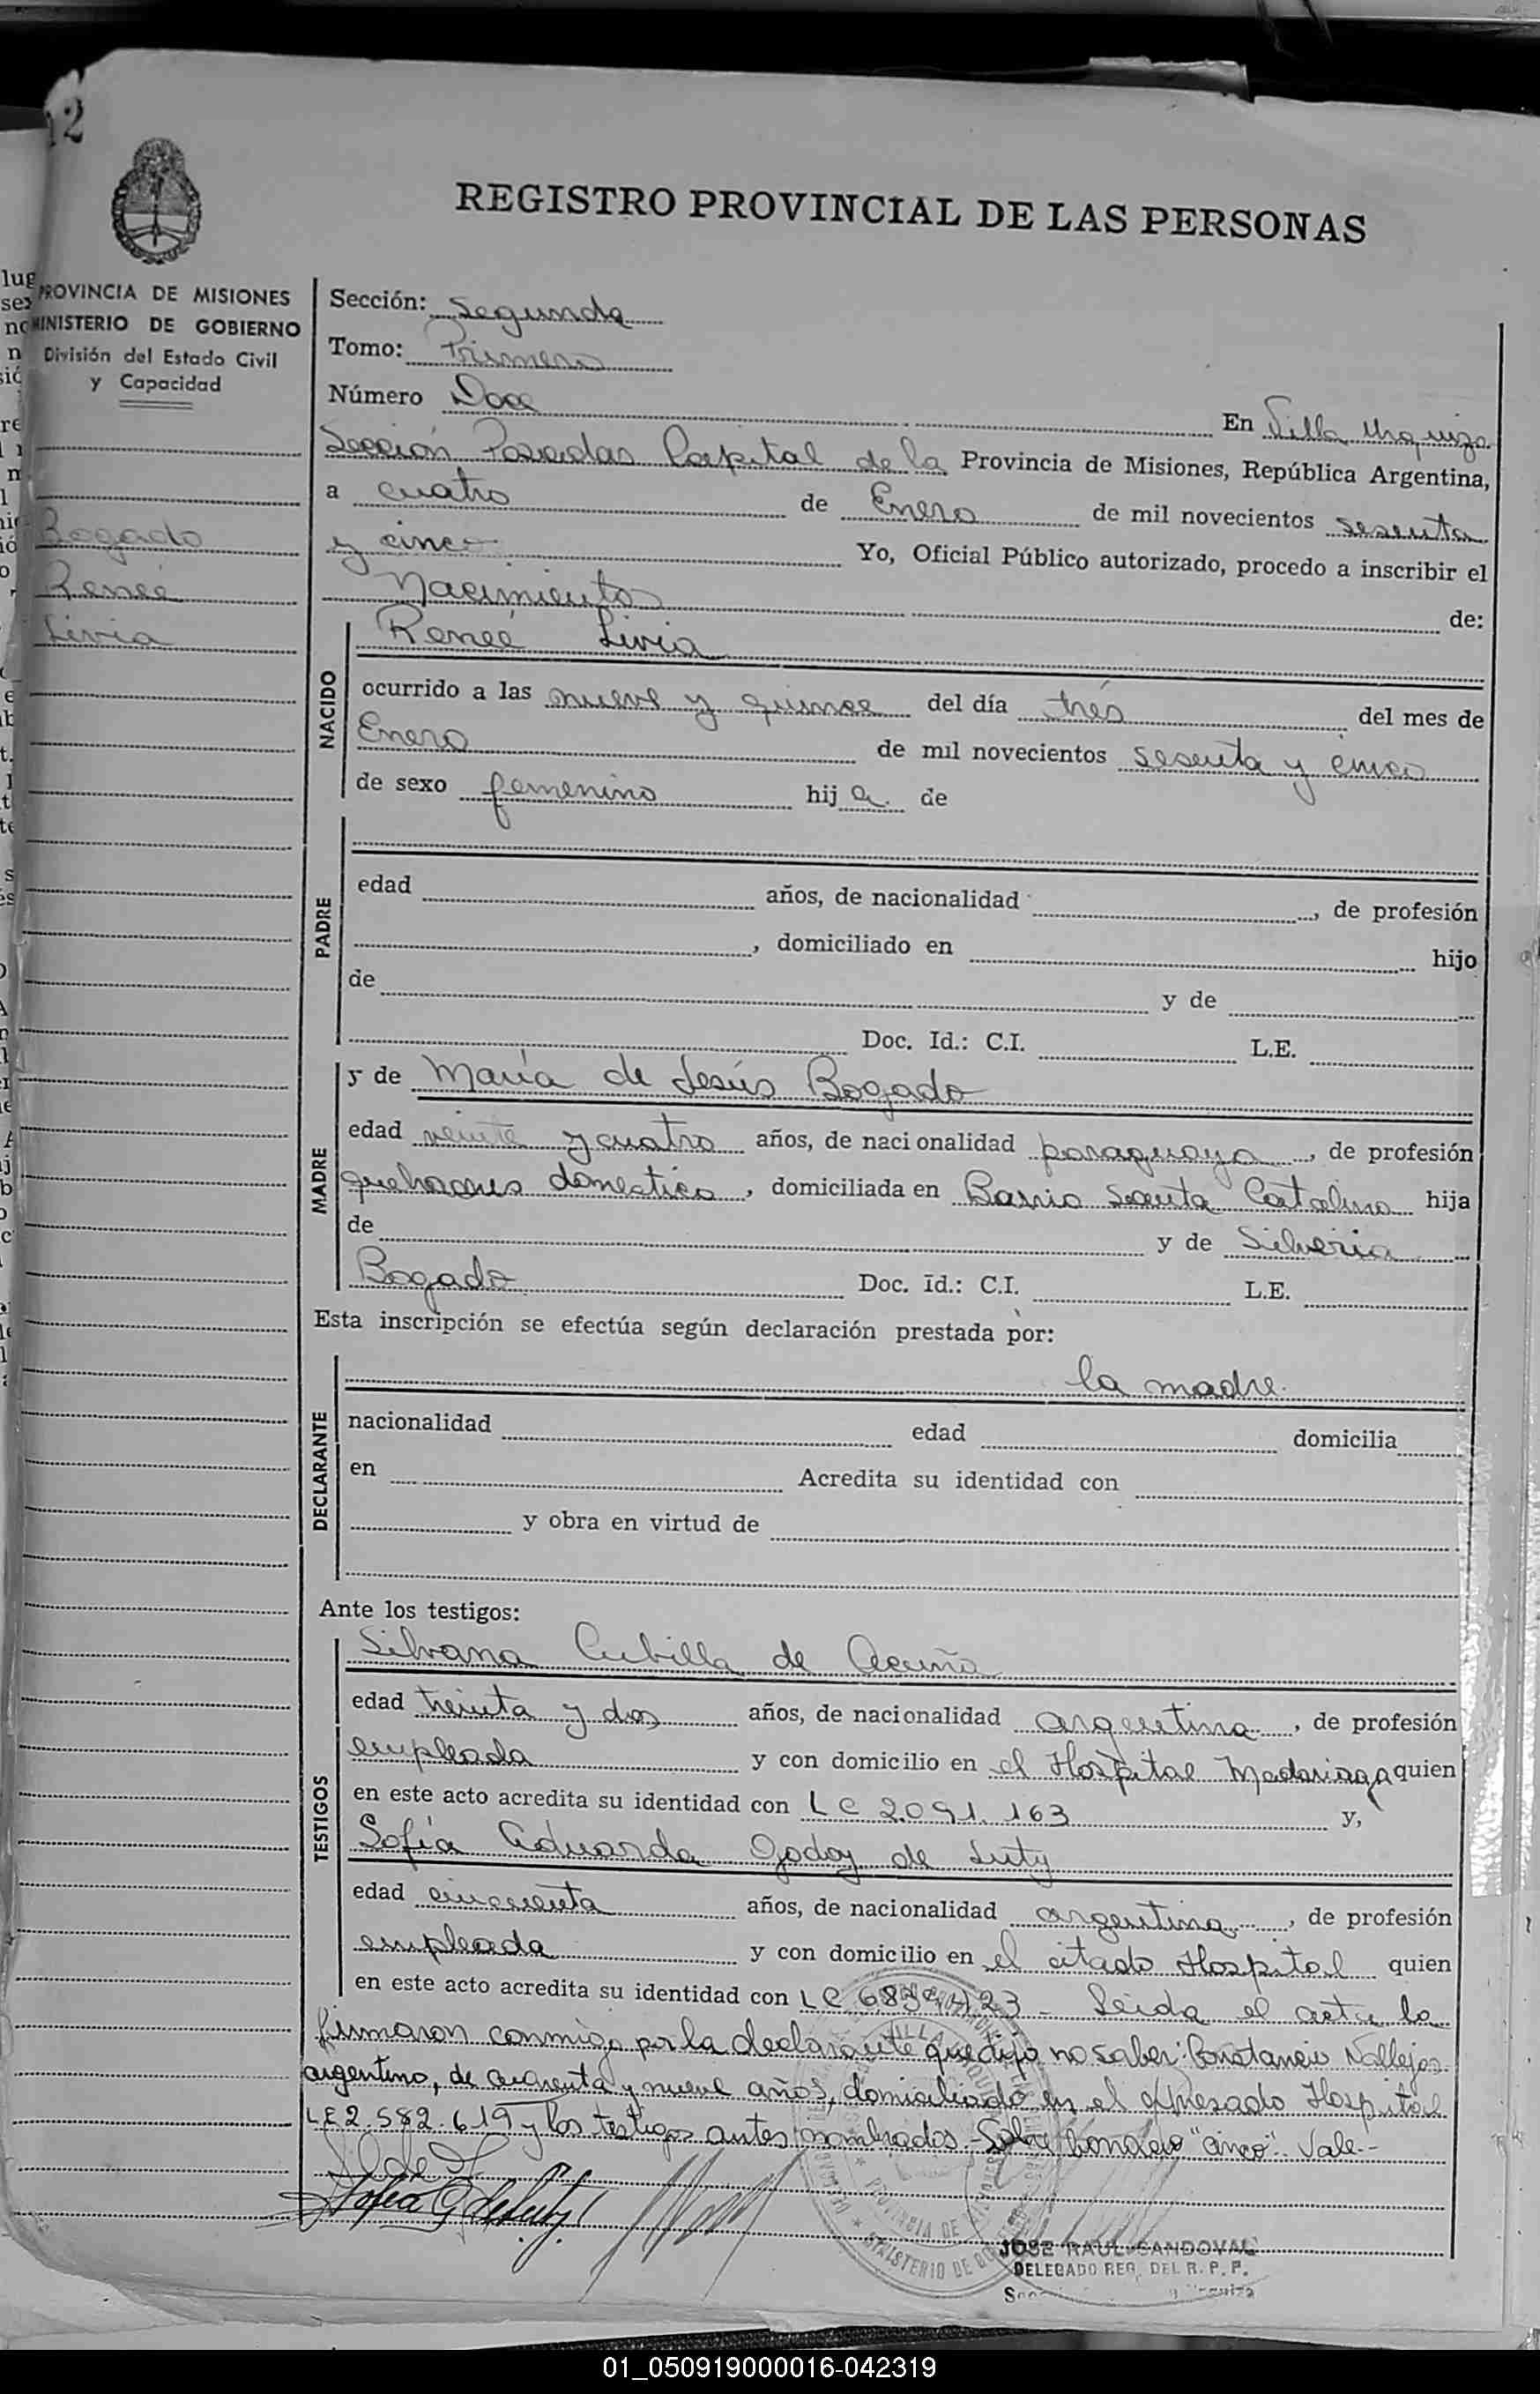 12
REGISTRO PROVINCIAL DE LAS PERSONAS
PROVINCIA DE MISIONES
MINISTERIO DE GOBIERNO
División del Estado Civil
y Capacidad
Bogado
Reneé
Livia
Sección: Segunda
Tomo: Primero
Número Doce En Villa Urquiza
Sección Posadas Capital de la Provincia de Misiones, República Argentina,
a cuatro de Enero de mil novecientos sesenta
y cinco Yo, Oficial Público autorizado, procedo a inscribir el
Nacimiento de:
NACIDO
Reneé Livia
ocurrido a las nueve y quince del día trés del mes de
Enero de mil novecientos sesenta y cinco
de sexo femenino hij a de
PADRE
edad años, de nacionalidad , de profesión
, domiciliado en hijo
de y de
Doc. Id.: C.I. L.E.
MADRE
y de María de Jesús Bogado
edad veinte y cuatro años, de nacionalidad paraguaya, de profesión
quehaceres domestica, domiciliada en Barrio Santa Catalina hija
de y de Silveria
Bogado Doc. Id.: C.I. L.E.
Esta inscripción se efectúa según declaración prestada por:
DECLARANTE
la madre.
nacionalidad edad domicilia
en Acredita su identidad con
y obra en virtud de
Ante los testigos:
TESTIGOS
Silvana Cubilla de Acuña
edad treinta y dos años, de nacionalidad argentina, de profesión
empleada y con domicilio en el Hospital Madariaga quien
en este acto acredita su identidad con LC 2.091.163 y,
Sofía Eduarda Godoy de Luty
edad cincuenta años, de nacionalidad argentina, de profesión
empleada y con domicilio en el citado Hospital quien
en este acto acredita su identidad con LC - Leida el acta la
firmaron conmigo por la declarante que dijo no saber: Constancio Vallejos
argentino, de cuarenta y nueve años, domiciliado en el expresado Hospital
LE 2.582.619 y los testigos antes nombrados.- Sobre "cinco". Vale.-
Sofia G de Luty
JOSE RAUL SANDOVAL
DELEGADO REG. DEL R. P. P.
01_050919000016-042319